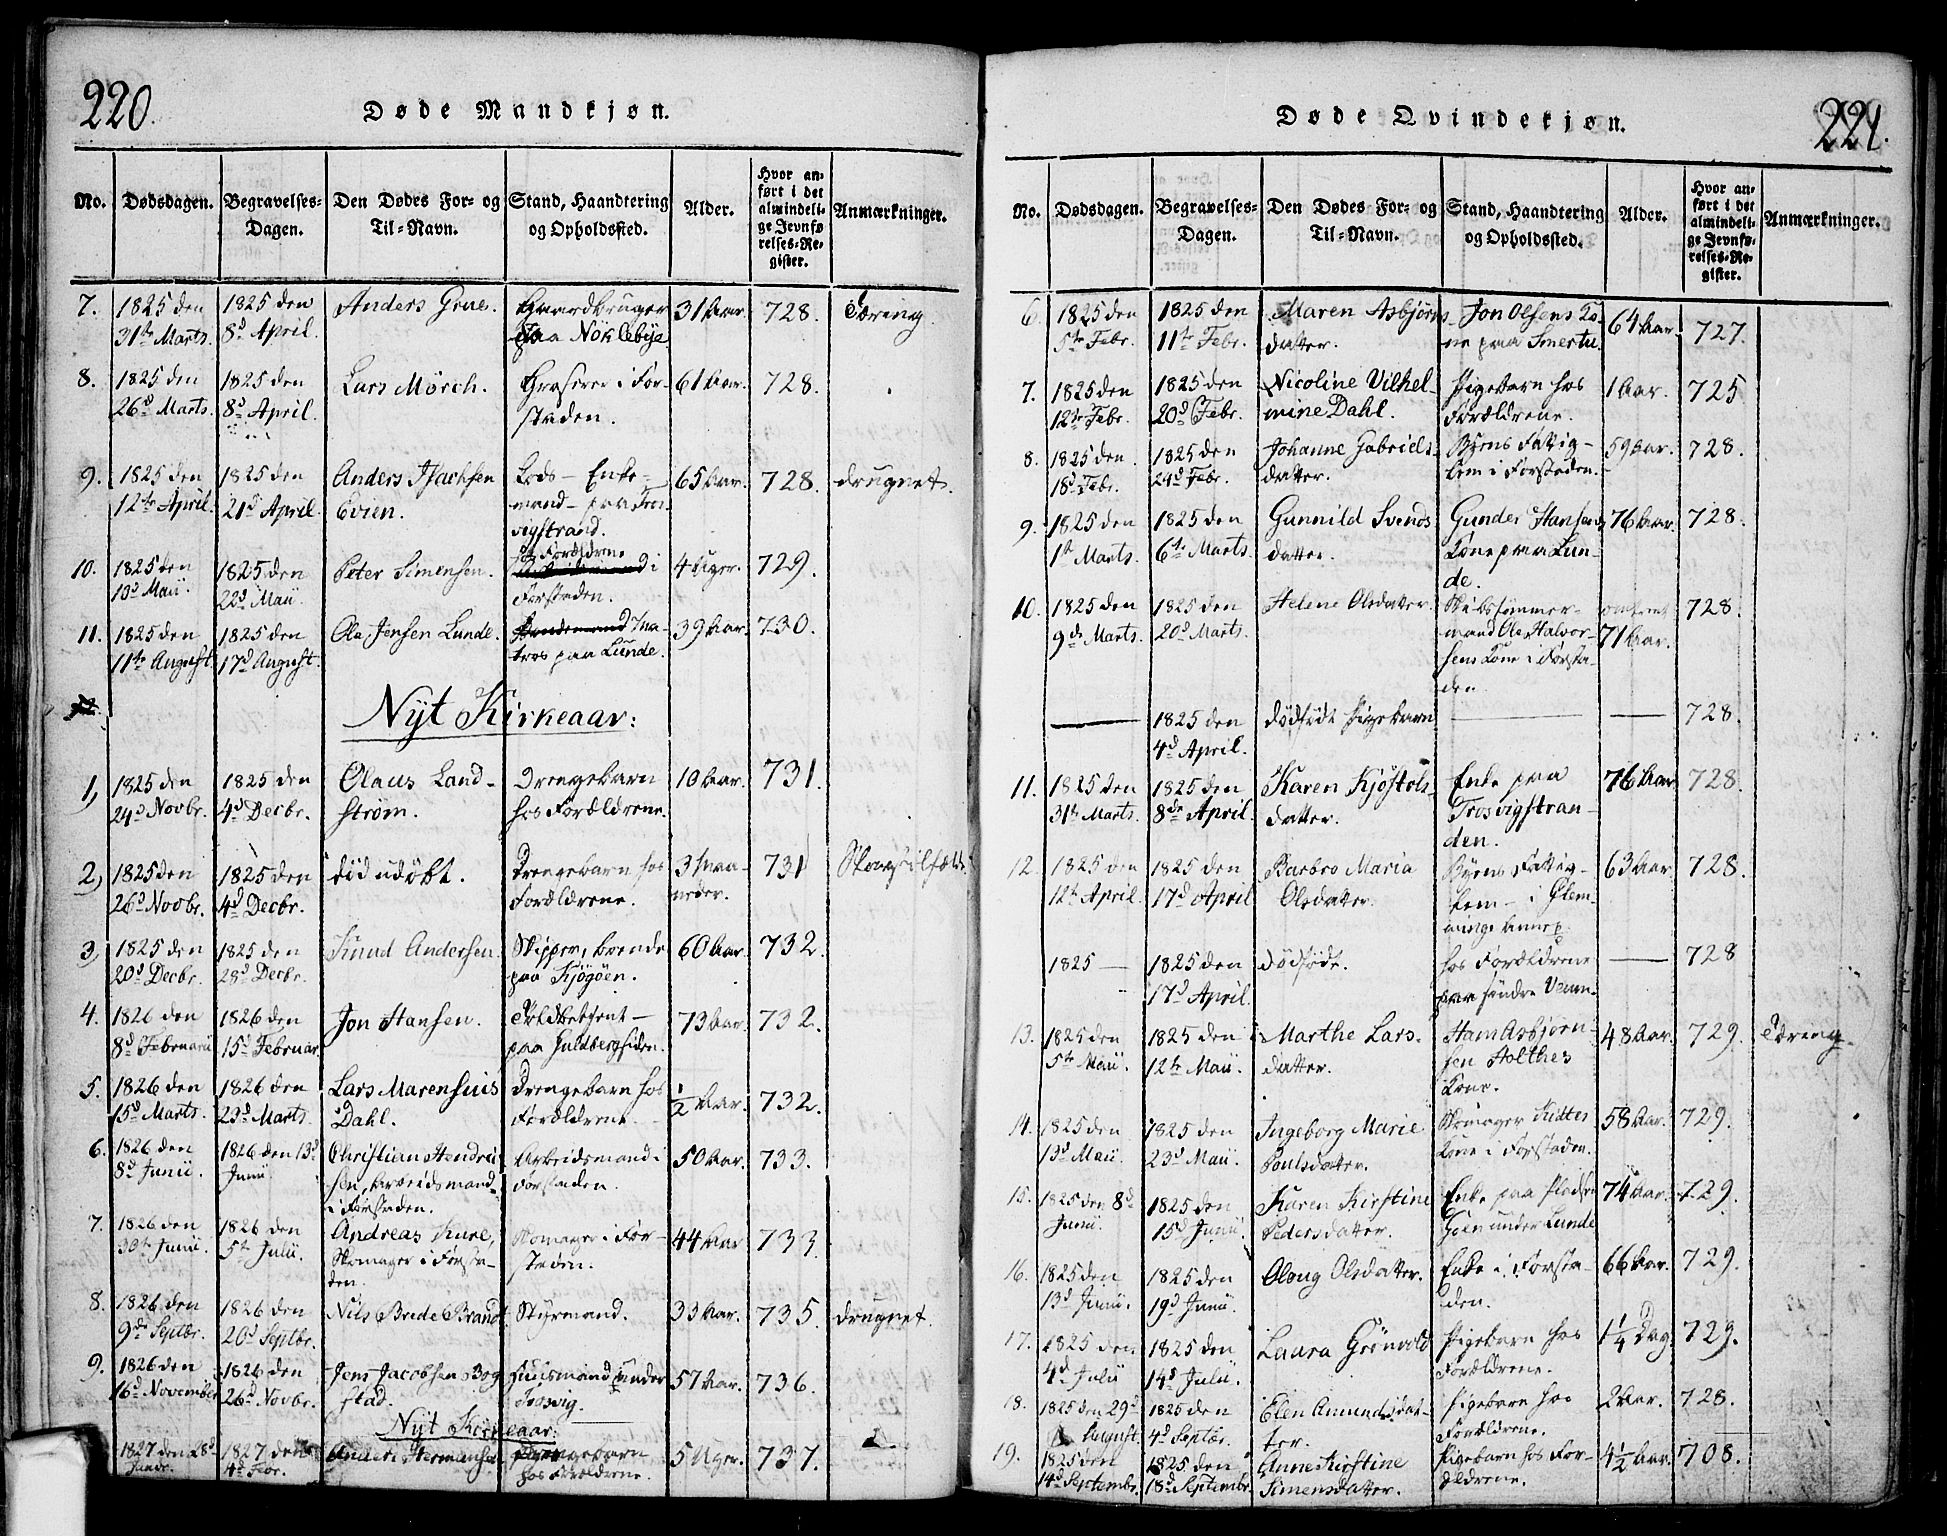 220.
Døde Mandkjøn.
No. Dødsdagen. Begravelses-Dagen. Den Dødes For- og Til-Navn. Stand, Haandtering og Opholdssted. Alder. Hvor anført i det almindelige Jevnførelses-Register. Anmærkninger.
7. 1825 den 31te Marts. 1825 den 8d April. Anders Grue. Gaardbruger paa Nöklebye 31 Aar. 728. Tæring.
8. 1825 den 26d Marts. 1825 den 8d April. Lars Mörch. Graverer i Forstaden. 61 Aar. 728.
9. 1825 den 12te April. 1825 den 21d April. Anders Isachsen Evien. Lods - Enkemand - paa Trosvigstrand. 65 Aar. 728. druqnet.
10. 1825 den 13d Maii. 1825 den 22d Maii. Peter Simensen. hos Forældrene i Forstaden. 4 Uger. 729.
11. 1825 den 11te August. 1825 den 17d August. Ole Jensen Lunde. Matros paa Lunde. 39 Aar. 730.
Nÿt Kirkeaar:
1, 1825 den 24d Novbr. 1825 den 4d Decbr. Olaus Landström. Drengebarn hos Forældrene. 10 Aar. 731.
2, 1825 den 26d Novbr. 1825 den 4d Decbr. död udöbt. Drengebarn hos Forældrene. 3 Maaneder. 731
3, 1825 den 20d Decbr. 1825 den 28d Decbr. Knud Andersen. Skipper, boende paa Kjögöen. 60 Aar. 732.
4. 1826 den 8d Februarii 1826 den 15d Februar. Jon Hansen. Toldbetjent - paa Guldbergsiden. 73 Aar. 732.
5. 1826 den 15d Marts. 1826 den 23d Marts. Lars Marenhius Dahl. Drengebarn hos Forældrene. 1/2 Aar. 732.
6. 1826 den 8d Junii. 1826 den 13d Junii. Christian Hendriksen, Arbeidsmand i Forstaden. Arbeidsmand i Forstaden. 50 Aar. 733.
7. 1826 den 30te Junii. 1826 den 5te Julii. Andreas Kure, Skomager i Forstaden. Skomager i Forstaden. 44 Aar 733.
8. 1826 den 9de Septbr. 1826 den 20d Septbr. Nils Brede Brandt Styrmand. 33 Aar. 735. druqnet.
9. 1826 den 16d November 1826 den 26d Novbr. Jens Jacobsen Bogstad. Huusmand under Trosvig. 57 Aar. 736.
Nÿt Kirkeaar:
1827 den 28d Janr. 1827 den 4d Febr. Anders Hermansen Drengebarn hos Forældrene. 5 Uger. 737.
221.
Døde Qvindekjøn.
No. Dødsdagen. Begravelses-Dagen. Den Dødes For- og Til-Navn. Stand, Haandtering og Opholdssted. Alder. Hvor anført i det almindelige Jevnførelses-Register. Anmærkninger.
6. 1825 den 5te Febr. 1825 den 11te Febr. Maren Asbjörnsdatter. Jon Olsens Kone paa Smertu. 64 Aar. 727.
7. 1825 den 12te Febr. 1825 den 20d Febr. Nicoline Vilhelmine Dahl. Pigebarn hos Forældrene. 1 Aar. 725
8. 1825 den 18d Febr. 1825 den 24d Febr. Johanne Gabrielsdatter. Byens Fattiglem i Forstaden. 59 Aar. 728.
9. 1825 den 1te Marts. 1825 den 6te Marts. Gunnild Svendsdatter. Gunder Hansens Kone paa Lunde. 76 Aar. 728.
10. 1825 den 9de Marts. 1825 den 20d Marts. Helene Olsdatter. Skibstömmermand Ole Halvorsens Kone i Forstaden 71 Aar. 728.
— 1825 den 4d April. dödfödt Pigebarn — — 728.
11. 1825 den 31te Marts. 1825 den 8de April. Karen Kjöstolsdatter. Enke paa Trosvigstranden. 76 Aar 728.
12. 1825 den 12te April. 1825 den 17d April Barbro Maria Olsdatter. Byens Fattiglem - i Glemminge Annex. 63 Aar. 728.
1825 — 1825 den 17d April. dödfödt. hos Forældrene paa söndre Veum. — 728
13. 1825 den 5te Maii. 1825 den 12te Maii. Marthe Larsdatter. Hans Asbjörnsen Holthes Kone. 48 Aar. 729. Tæring.
14. 1825 den 13d Maii. 1825 den 23d Maii. Ingeborg Marie Poulsdatter. Skomager Kuttes Kone i Forstaden. 58 Aar. 729.
15. 1825 den 8d Junii. 1825 den 15d Junii Karen Kirstine Pedersdatter. Enke paa under Lunde 74 Aar. 729.
16. 1825 den 13d Junii. 1825 den 19d Junii. Oloug Olsdatter. Enke i Forstaden. 66 Aar. 729.
17. 1825 den 4d Julii 1825 den 14d Julii. Laura Grönvold Pigebarn hos Forældrene. 1 1/4 Dag. 729.
18. 1825 den 29d August. 1825 den 4d Septbr. Elen Amundsdatter. Pigebarn hos Forældrene. 2 Aar. 728.
19. 1825 den 4d Septembr. 1825 den 18d Septembr. Anne Kirstine Simensdatter. Pigebarn hos Forældrene. 4 1/2 Aar. 708.